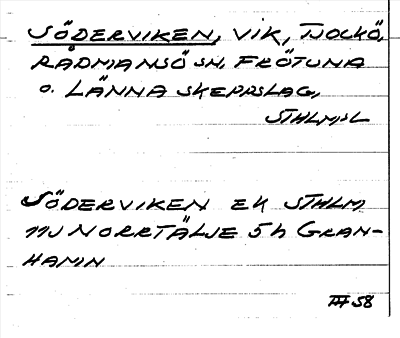 SÖDERVIKEN, VIK, TJOCKÖ,
RÅDMANSÖ SN, FRÖTUNA
O. LÄNNA SKEPPSLAG,
STHLMSL
SÖDERVIKEN EK STHLM
11J NORRTÄLJE 5h GRAN-
HAMN
III 58